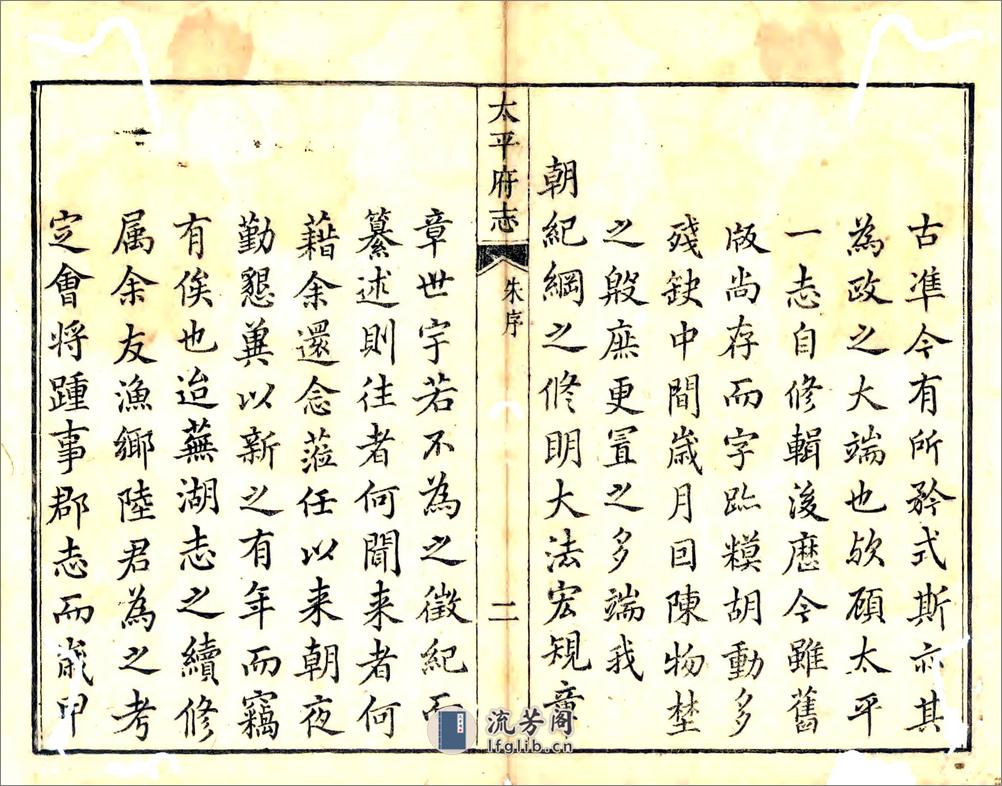 古凖今有所矜式斯亦其
為政之大端也欤顧太平
一志自修輯後歴今雖舊
版尚存而字跡糢胡動多
殘缺中間歳月回陳物埜
之殷庶更置之多端我
朝紀綱之修明大法宏規章
太平府志
朱序
二
章世宇若不為之徵紀而
纂述則往者何聞来者何
藉余還念蒞任以来朝夜
勤懇冀以新之有年而竊
有俟也迨蕪湖志之續修
属余友漁鄉陸君為之考
定會将踵事郡志而歳甲
流芳阁
lfglib.cn